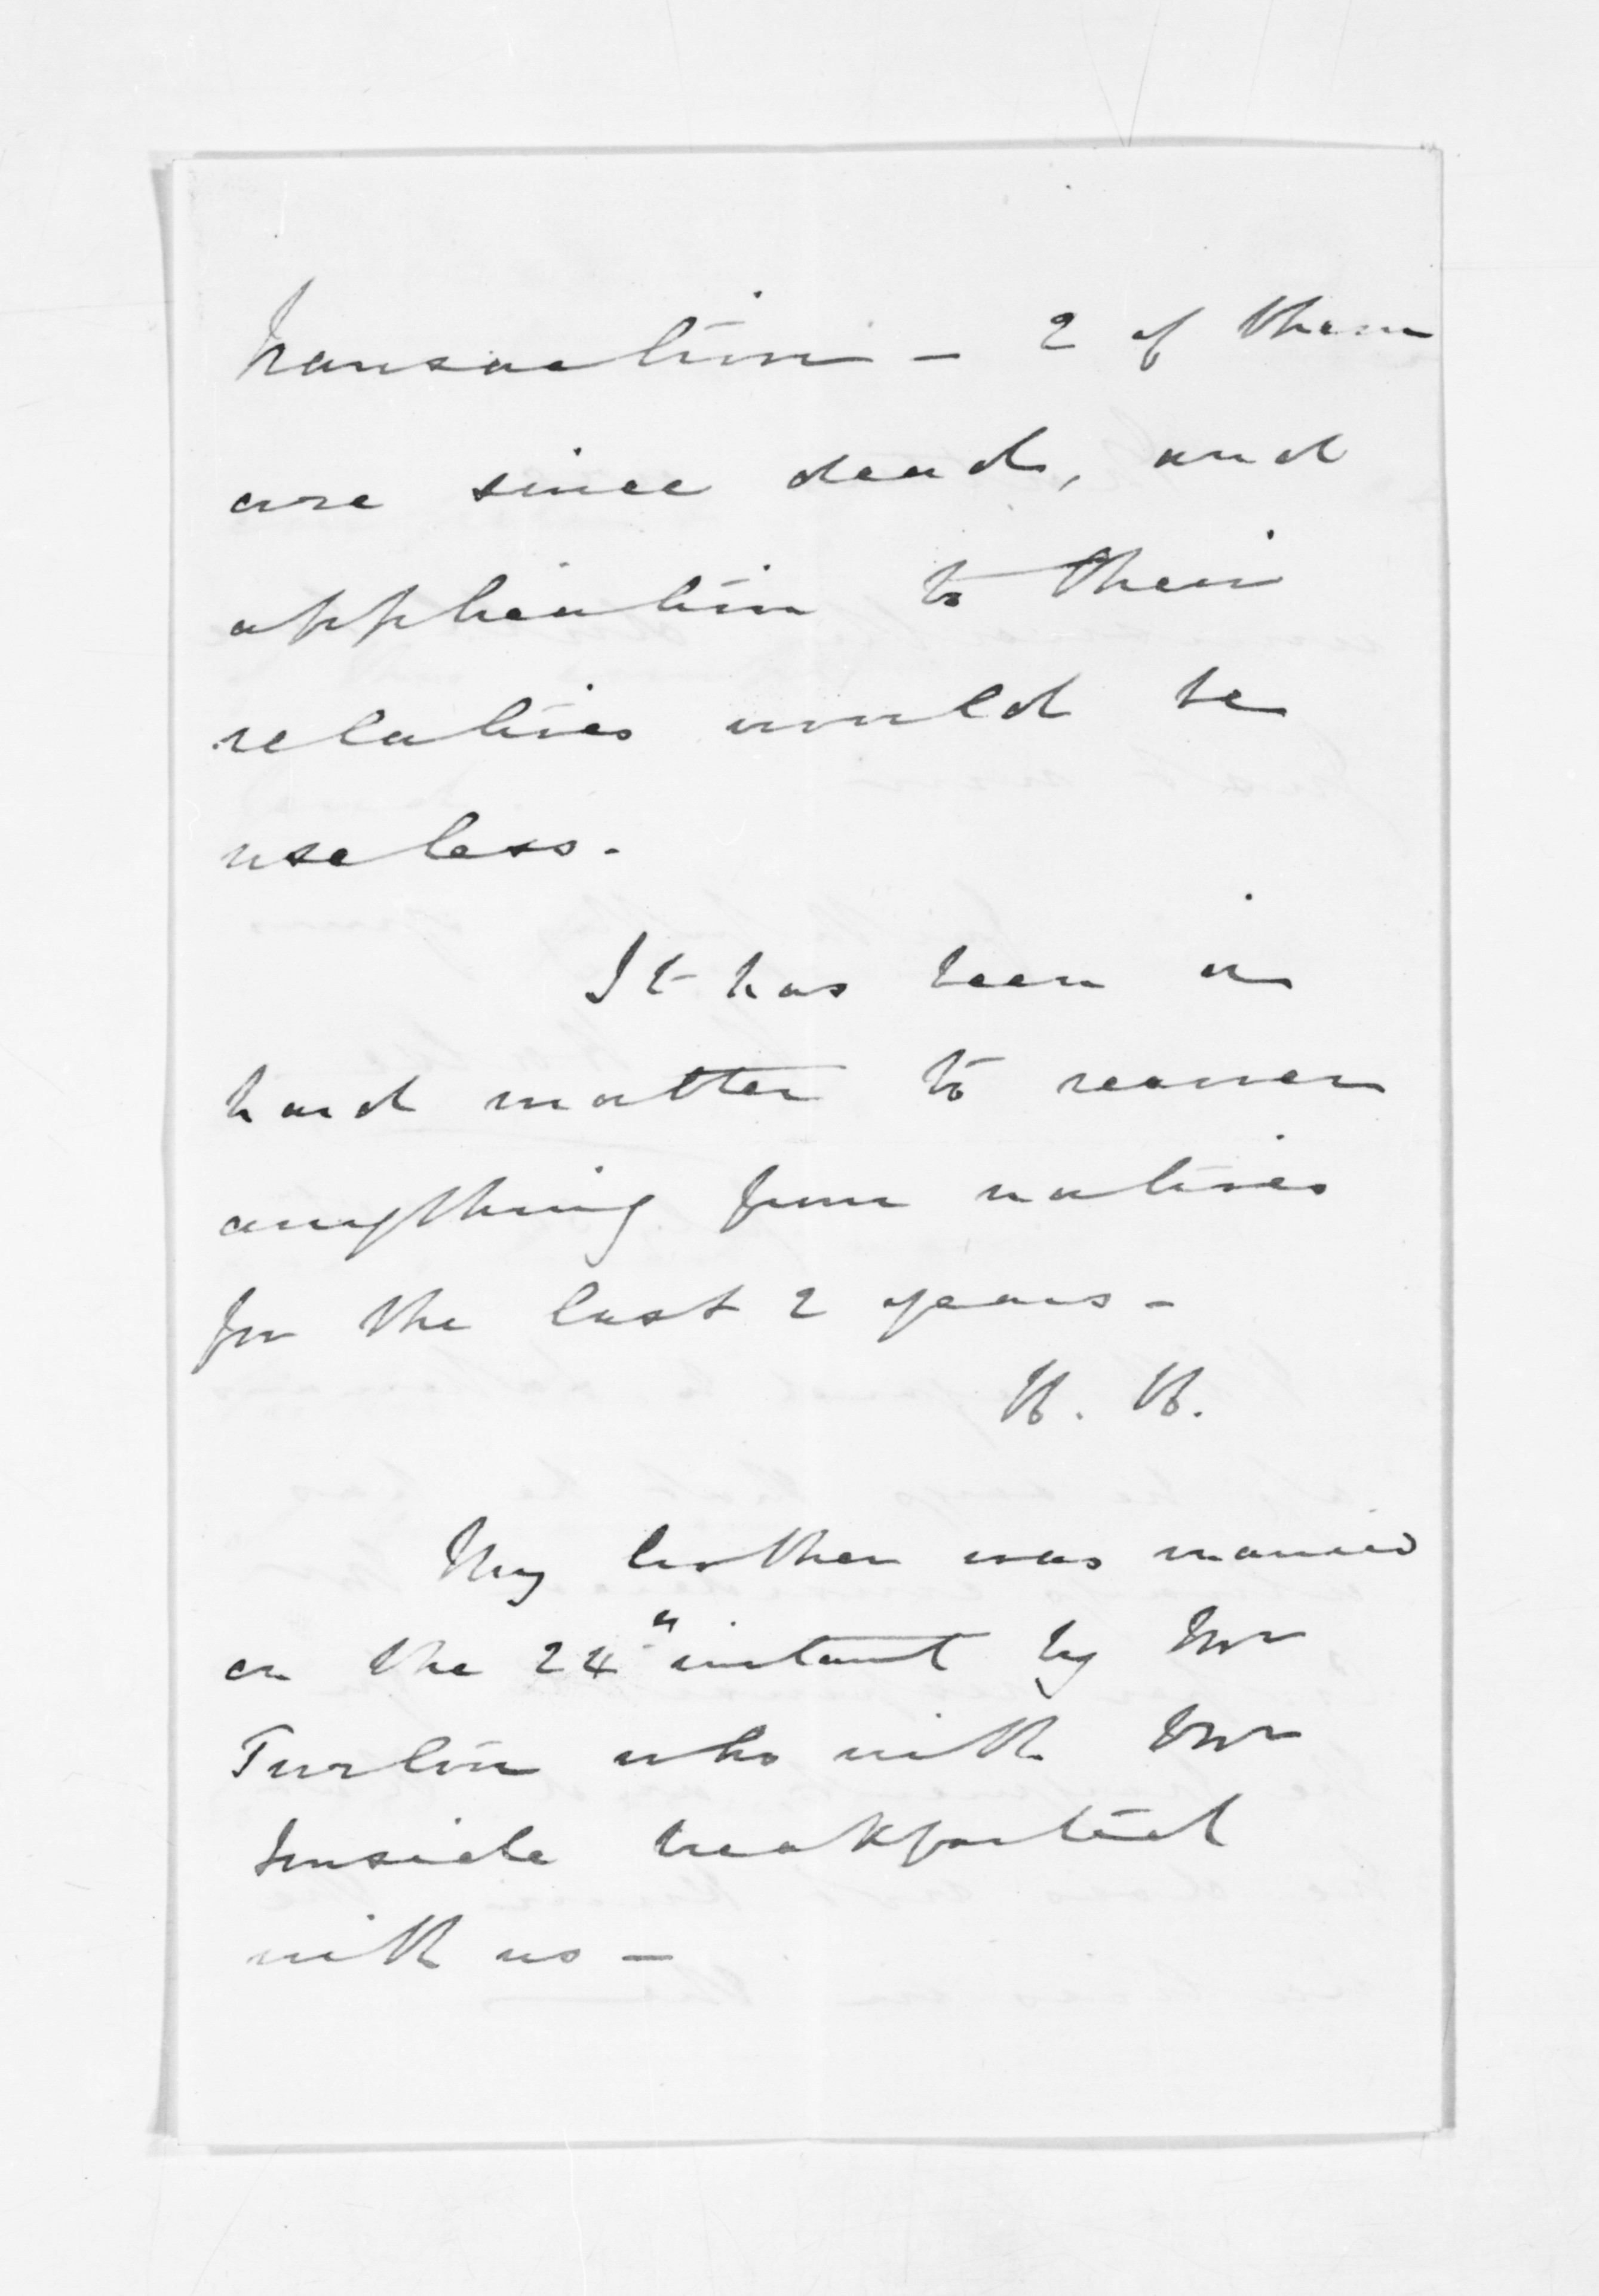 transaction - 2 of them
are since dead, and
application to their
relatives would be
useless.
It has been a
hard matter to recover
anything from natives
for the last 2 years -
My brother was married
on the 24" instant by Mr
Turton who with Mr
breakfasted
with us -